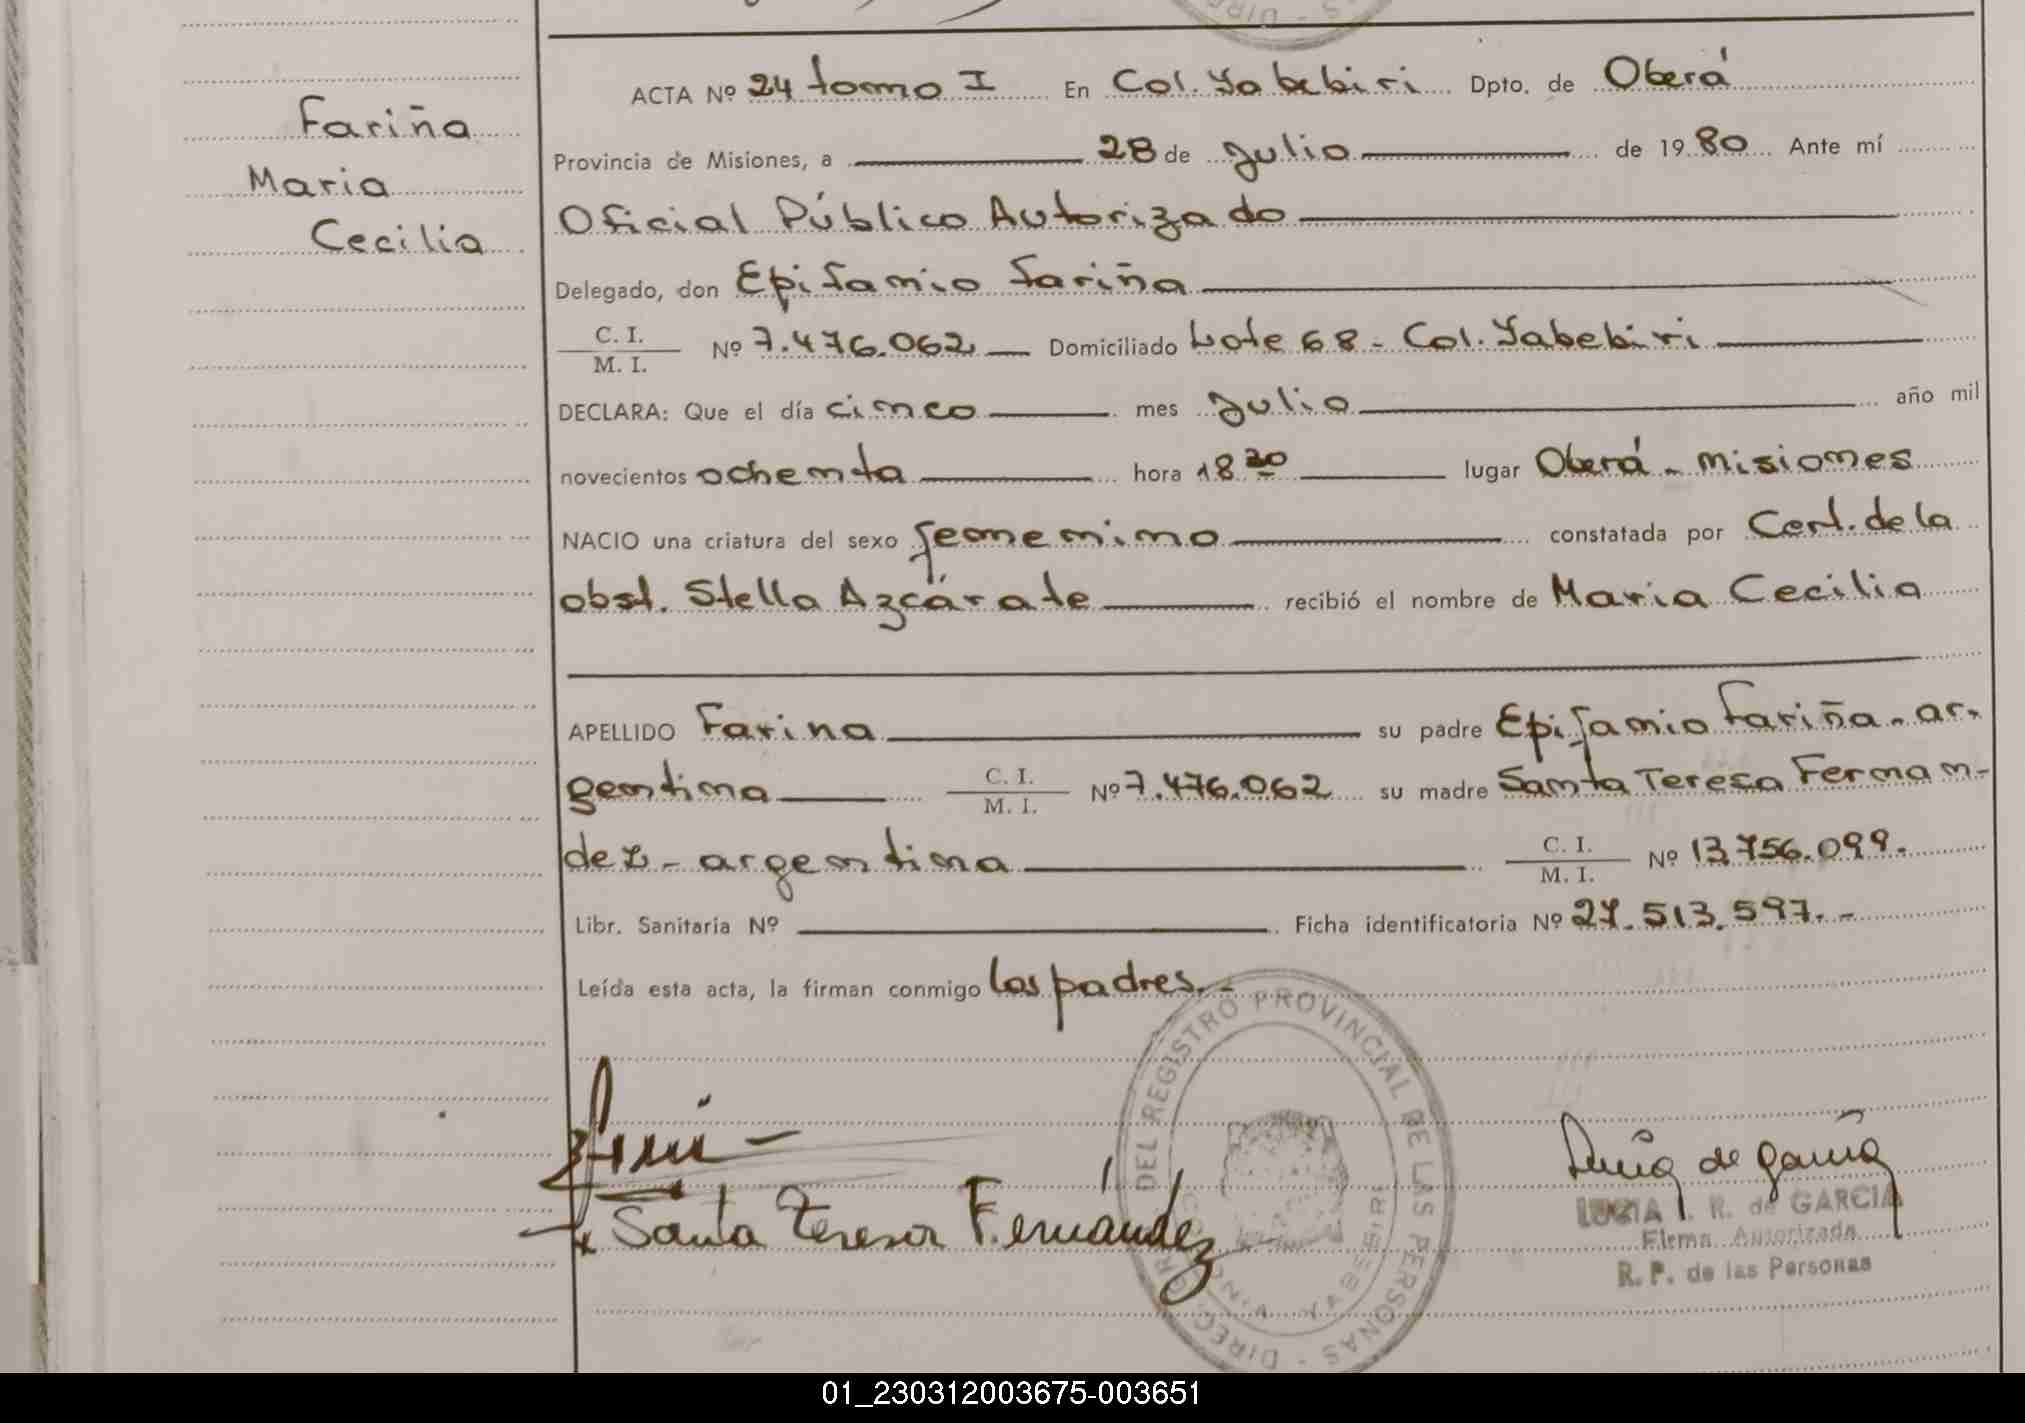 Fariña
Maria
Cecilia
ACTA Nº 24 tomo I En Col. Yabebiri Dpto. de Oberá
Provincia de Misiones, a 28 de Julio de 1980 Ante mí
Oficial Público Autorizado
Delegado, don Epifanio Fariña
C. I.
M. I. Nº 7.476.062 Domiciliado Lote 68 - Col. Yabebiri
DECLARA: Que el día cinco mes Julio año mil
novecientos ochenta hora 18 30 lugar Oberá - Misiones
NACIO una criatura del sexo femenino constatada por Cert. de la
obst. Stella Azcárate recibió el nombre de Maria Cecilia
APELLIDO Farina su padre Epifanio Fariña - ar-
gentina C. I.
M. I. Nº 7.476.062 su madre Santa Teresa Fernan-
dez - argentina C. I.
M. I. Nº 13.756.099.
Libr. Sanitaria Nº Ficha identificatoria Nº 27.513.597.-
Leída esta acta, la firman conmigo los padres.-
DIRECC GRAL DEL REGISTRO PROVINCIAL DE LAS PERSONAS
COLONIA YABEBIRI
Santa Teresa Fernández
de García
LUCIA I. R. de GARCIA
Firma Autorizada
R. P. de las Personas
01_230312003675-003651